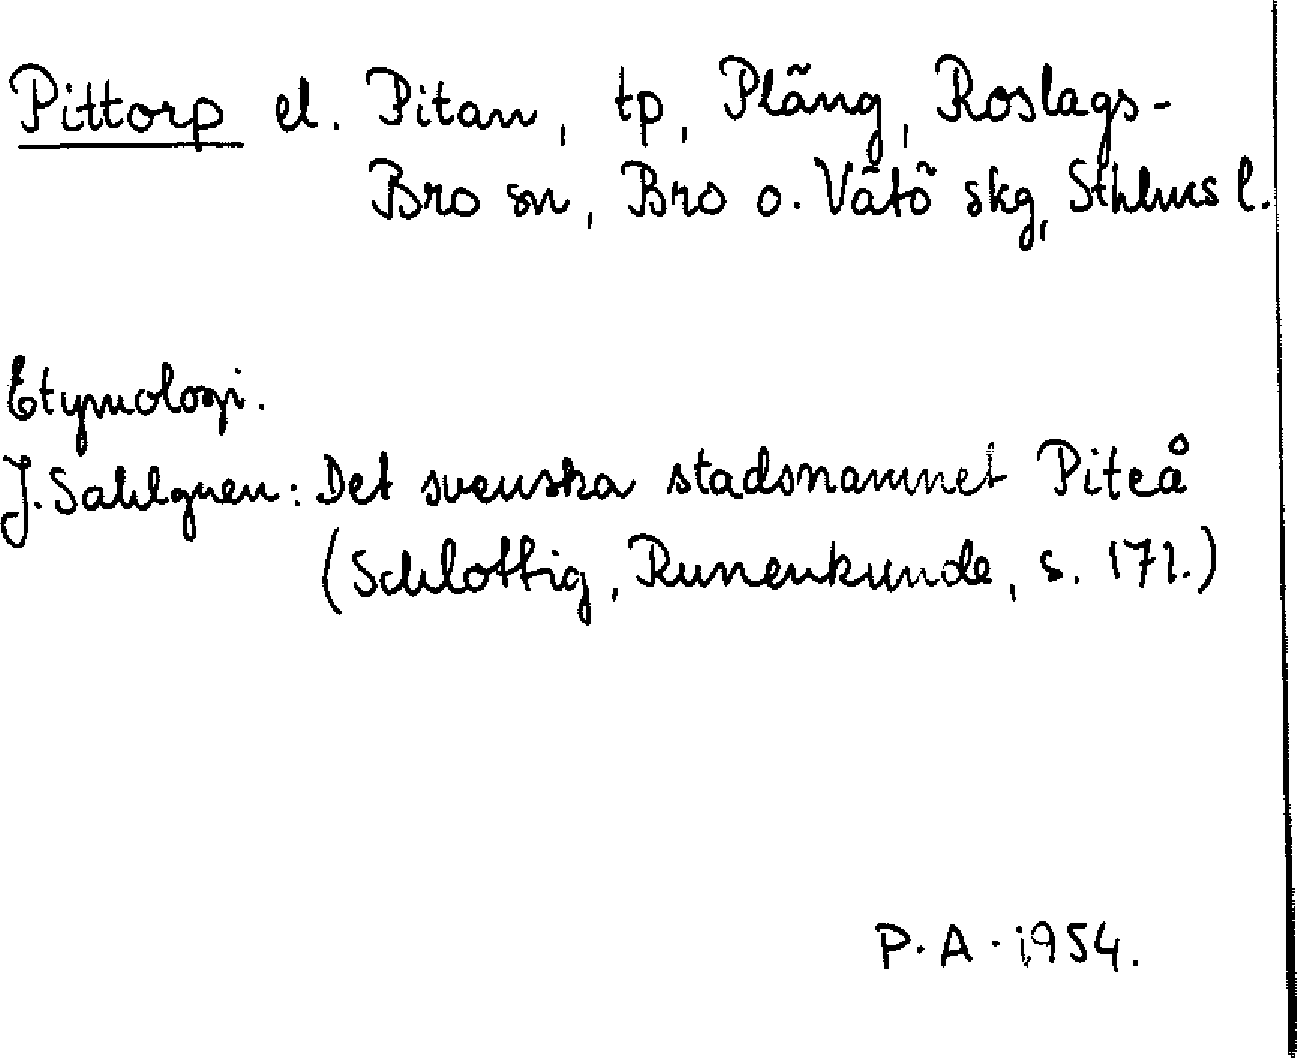 Pittorp el. Pitan, tp, Pläng, Roslags-
Bro sn, Bro o. Vätö skg, Sthlms l.
Etymologi.
J. Sahlgren: Det svenska stadsnamnet Piteå
(Schlottig, Runenkunde, s. 171.)
P. A. 1954.